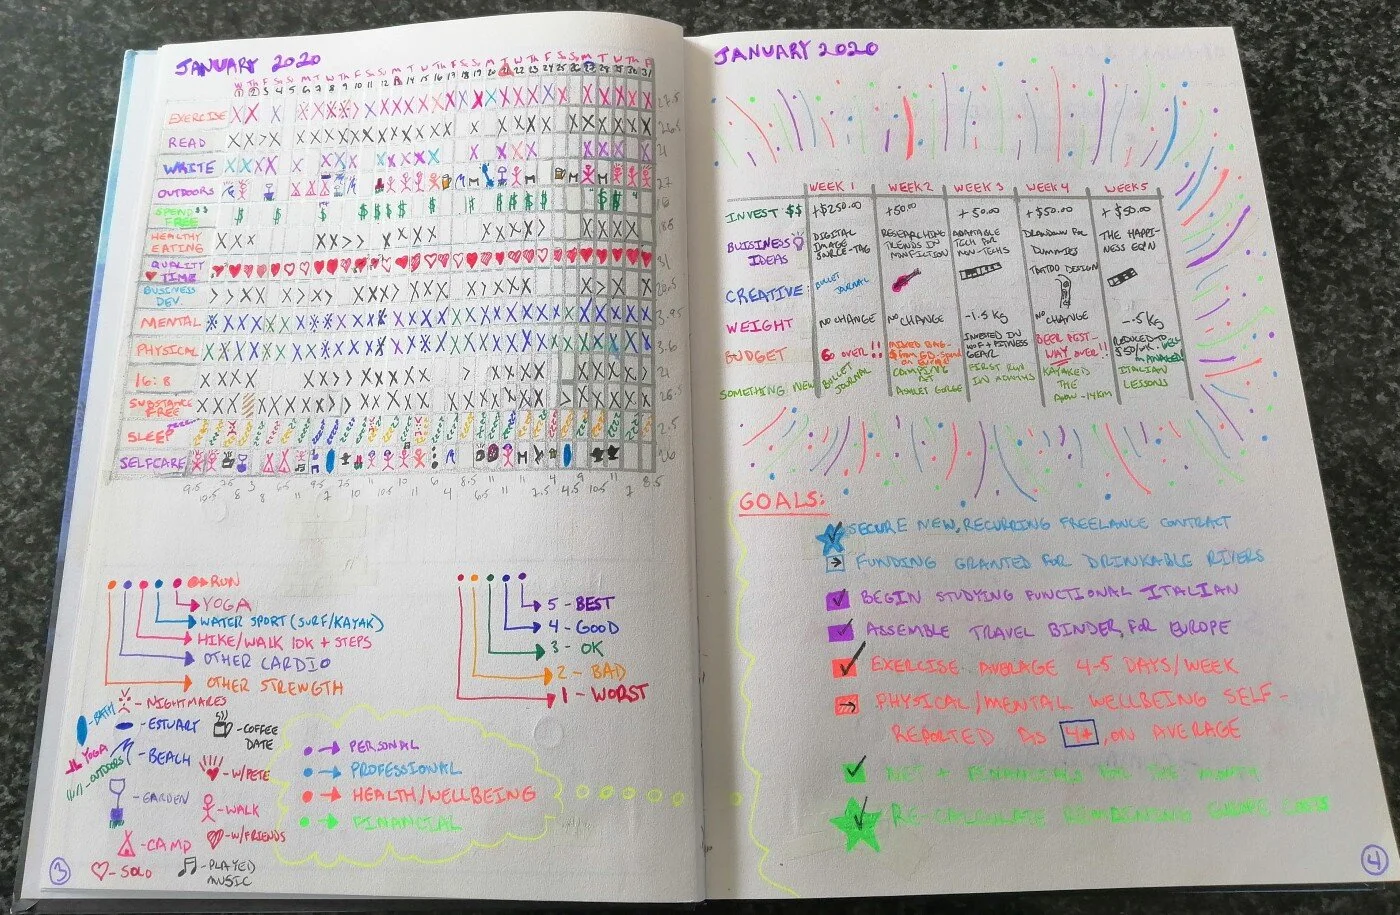 JANUARY 2020
W Th F Sa Su M T W Th F Sa Su M T W Th F Sa Su M T W Th F Sa Su M T W Th F
1 2 3 4 5 6 7 8 9 10 11 12 13 14 15 16 17 18 19 20 21 22 23 24 25 26 27 28 29 30 31
EXERCISE 27.5
READ 26.5
WRITE 21
OUTDOORS 27
SPEND $$
FREE
HEALTHY
EATING
QUALITY
TIME 31
BUSINESS
DEV. 20.5
MENTAL 3.95
PHYSICAL 3.6
16:8 21
SUBSTANCE
FREE 26.5
SLEEP 2.5
SELFCARE 26
RUN
YOGA
WATER SPORT (SURF/KAYAK)
HIKE/WALK 10K + STEPS
OTHER CARDIO
OTHER STRENGTH
5 - BEST
4 - GOOD
3 - OK
2 - BAD
1 - WORST
- BATH
- NIGHTMARES
- ESTUARY
- COFFEE
DATE
YOGA
- OUTDOORS
- BEACH
- W/PETE
- GARDEN
- WALK
- CAMP
- W/FRIENDS
- SOLO
- PLAYED
MUSIC
PERSONAL
PROFESSIONAL
HEALTH/WELLBEING
FINANCIAL
3
JANUARY 2020
WEEK 1 WEEK 2 WEEK 3 WEEK 4 WEEK 5
INVEST $$ +$250.00 +50.00 +50.00 +$50.00 +$50.00
BUISINESS
IDEAS
DIGITAL
IMAGE
SOURCE-TAG
RESEARCHING
TRENDS IN
NONFICTION
ADAPTABLE
TECH FOR
NON-TECHS
DRAWDOWN FOR
DUMMIES
THE HAPPI-
NESS EQ'N
CREATIVE
BULLET
JOURNAL
TATTOO DESIGN
WEIGHT NO CHANGE NO CHANGE -1.5 KG NO CHANGE -.5 KG
BUDGET
60 OVER!!
INVESTED IN
WOF + FITNESS
GEAR
BEER FEST-
WAY OVER!!
REDUCED TO
SOMETHING NEW
BULLET
JOURNAL
CAMPING
AT
ASHLEY GORGE
FIRST RUN
IN MONTHS
KAYAKED
THE
AVON - 14KM
ITALIAN
LESSONS
GOALS:
SECURE NEW, RECURRING FREELANCE CONTRACT
FUNDING GRANTED FOR DRINKABLE RIVERS
BEGIN STUDYING FUNCTIONAL ITALIAN
ASSEMBLE TRAVEL BINDER, FOR EUROPE
EXERCISE AVERAGE 4-5 DAYS/WEEK
PHYSICAL/MENTAL WELLBEING SELF-
REPORTED AS 4+, ON AVERAGE
NET + FINANCIALS FOR THE MONTH
RE-CALCULATE REMAINING EUROPE COSTS
4